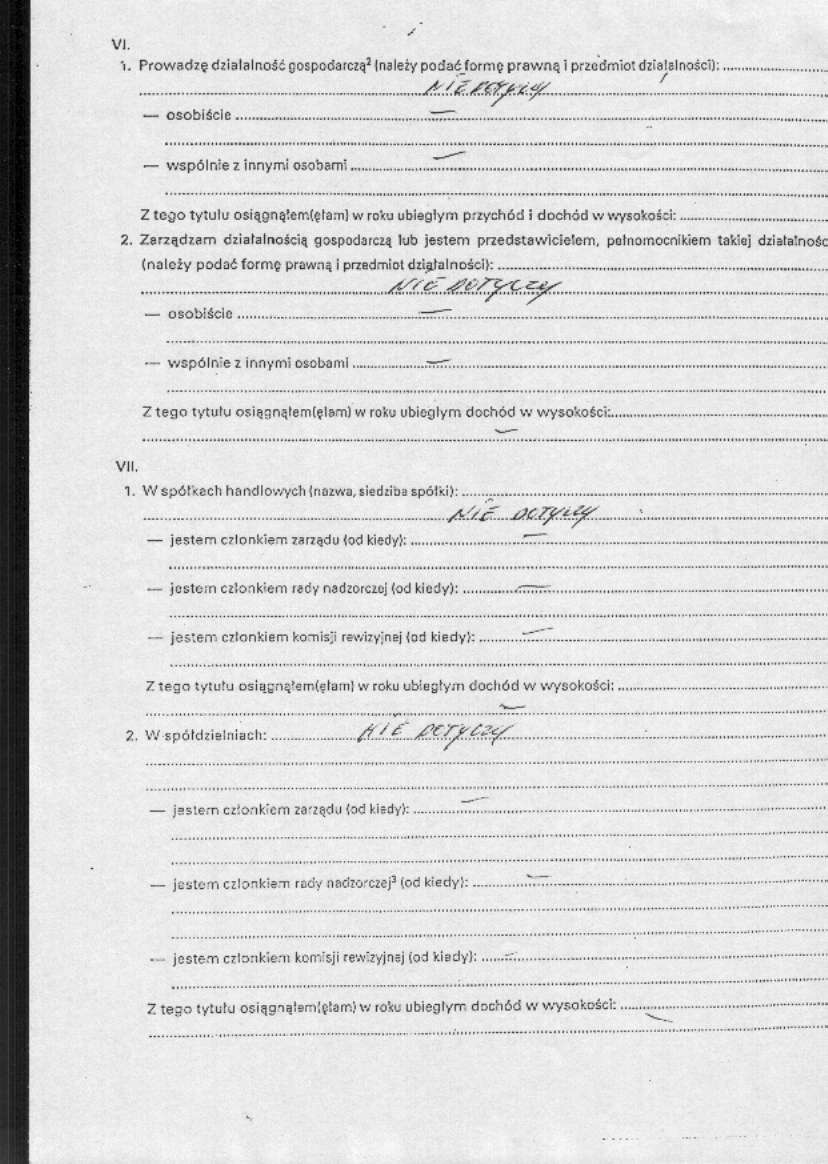 VI.
1. Prowadzę działalność gospodarczą² (należy podać formę prawną i przedmiot działalności):
NIE DOTYCZY
— osobiście —
— wspólnie z innymi osobami —
Z tego tytułu osiągnąłem(ęłam) w roku ubiegłym przychód i dochód w wysokości:
2. Zarządzam działalnością gospodarczą lub jestem przedstawicielem, pełnomocnikiem takiej działalnośc
(należy podać formę prawną i przedmiot działalności):
NIE DOTYCZY
— osobiście —
— wspólnie z innymi osobami —
Z tego tytułu osiągnąłem(ęłam) w roku ubiegłym dochód w wysokości:
—
VII.
1. W spółkach handlowych (nazwa, siedziba spółki):
NIE DOTYCZY
— jestem członkiem zarządu (od kiedy): —
— jestem członkiem rady nadzorczej (od kiedy): —
— jestem członkiem komisji rewizyjnej (od kiedy): —
Z tego tytułu osiągnąłem(ęłam) w roku ubiegłym dochód w wysokości:
—
2. W spółdzielniach: NIE DOTYCZY
— jestem członkiem zarządu (od kiedy): —
— jestem członkiem rady nadzorczej³ (od kiedy): —
— jestem członkiem komisji rewizyjnej (od kiedy): —
Z tego tytułu osiągnąłem(ęłam) w roku ubiegłym dochód w wysokości:
—